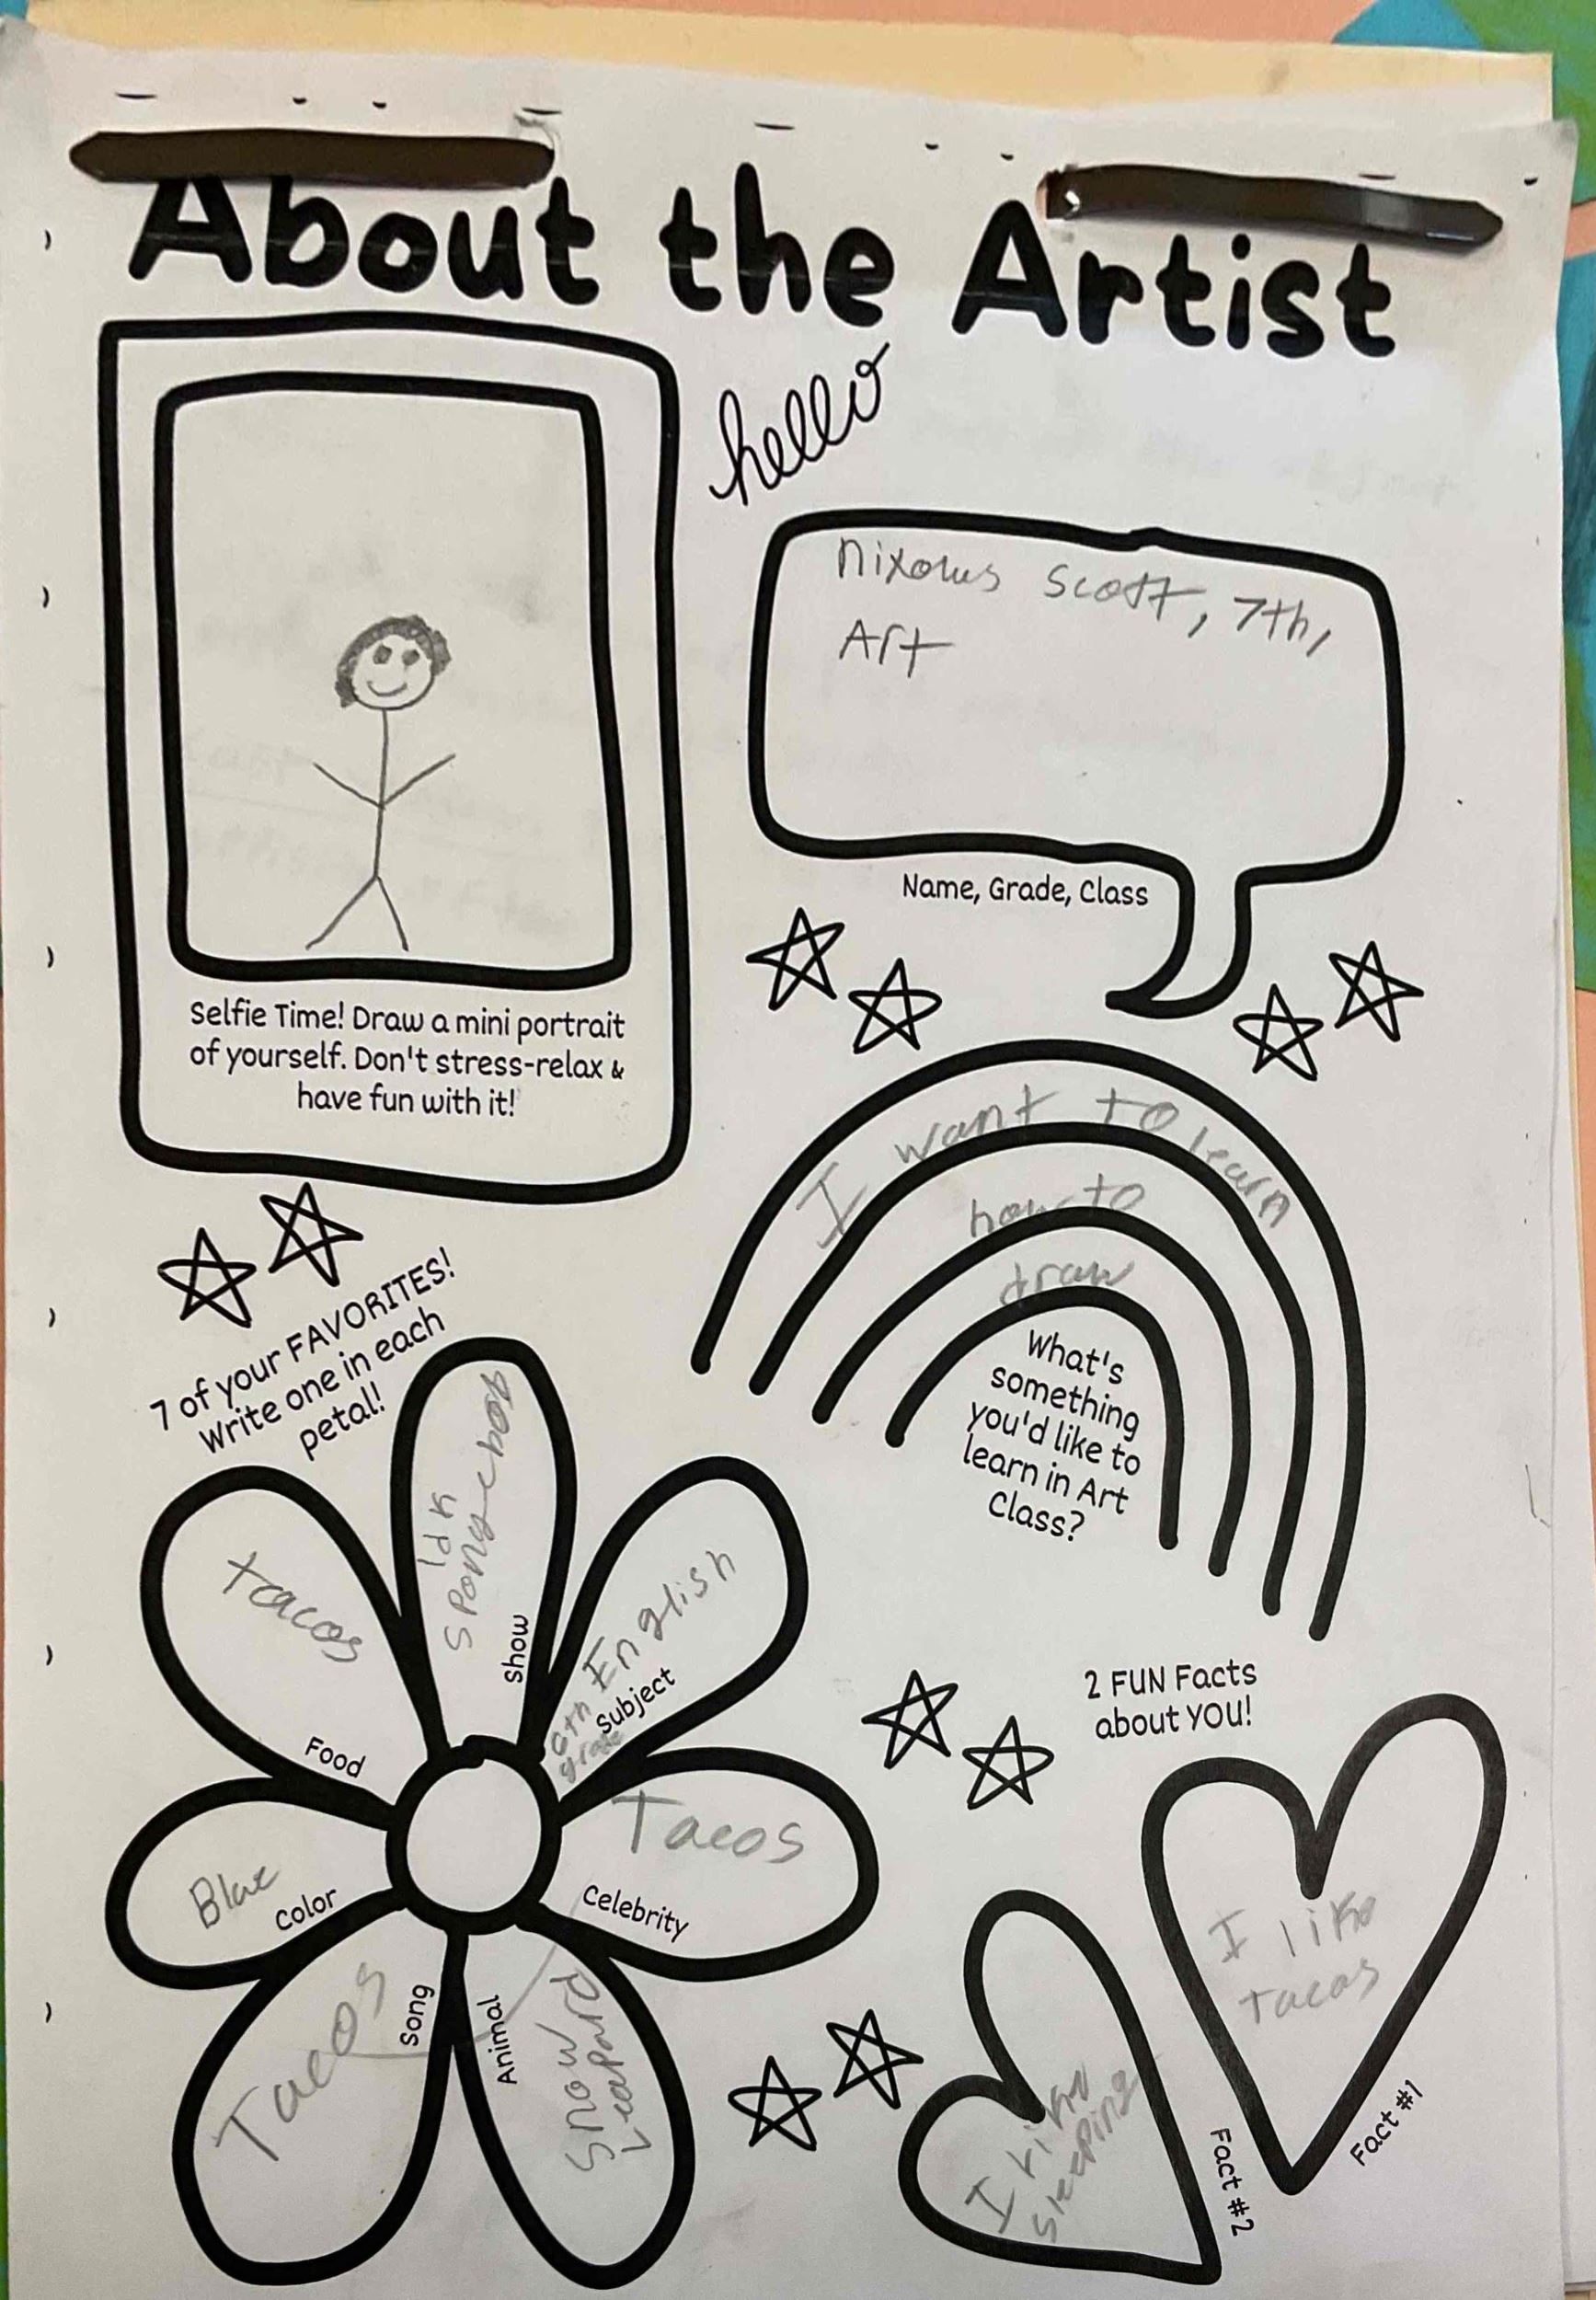 About the Artist
hello
Scott, 7th,
Art
Name, Grade, Class
Selfie Time! Draw a mini portrait
of yourself. Don't stress-relax &
have fun with it!
I want to learn
how to
draw
What's
something
you'd like to
learn in Art
Class?
7 of your FAVORITES!
Write one in each
petal!
tacos
Food
Idk
Spongebob
Show
6th English
grade
Subject
Tacos
Celebrity
Snow
Leapard
Animal
Tacos
Song
Blue
Color
2 FUN Facts
about YOU!
I like
tacos
Fact #1
I like
sleeping
Fact #2